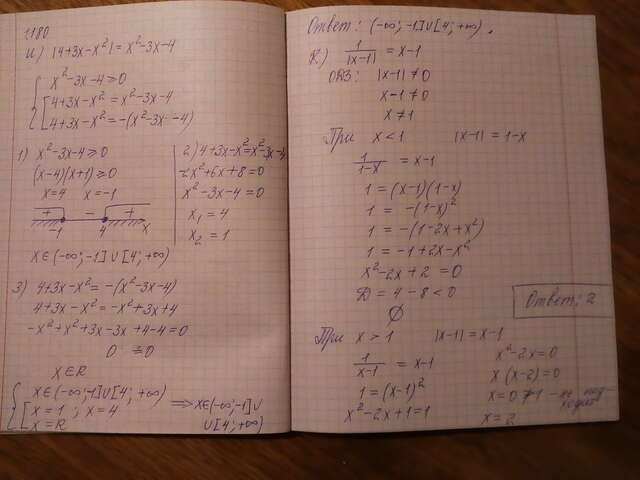 1180
и) |4+3x-x²| = x²-3x-4
x²-3x-4 ≥ 0
4+3x-x² = x²-3x-4
4+3x-x² = -(x²-3x-4)
1) x²-3x-4 ≥ 0
(x-4)(x+1) ≥ 0
x=4 x=-1
+ - +
-1 4 x
x∈(-∞;-1]∪[4;+∞)
2) 4+3x-x²=x²-3x-4
-2x²+6x+8=0
x²-3x-4=0
x₁ = 4
x₂ = 1
3) 4+3x-x² = -(x²-3x-4)
4+3x-x² = -x²+3x+4
-x²+x²+3x-3x+4-4=0
0 = 0
x∈R
x∈(-∞;-1]∪[4;+∞)
x=1; x=4
x=R
⟹ x∈(-∞;-1]∪
∪[4;+∞)
Ответ: (-∞;-1]∪[4;+∞).
к) 1/|x-1| = x-1
ОДЗ: |x-1| ≠ 0
x-1 ≠ 0
x ≠ 1
При x < 1 |x-1| = 1-x
1/(1-x) = x-1
1 = (x-1)(1-x)
1 = -(1-x)²
1 = -(1-2x+x²)
1 = -1+2x-x²
x²-2x+2 = 0
D = 4-8 < 0
∅
Ответ: 2
При x > 1 |x-1| = x-1
1/(x-1) = x-1
1 = (x-1)²
x²-2x+1=1
x²-2x=0
x(x-2)=0
x=0 ≯ 1 - не подходит
x=2